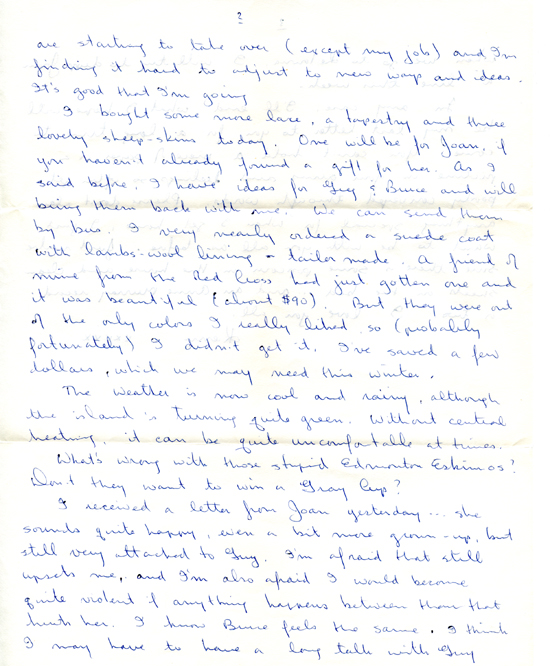 2
are starting to take over (except my job) and I'm
finding it hard to adjust to new ways and ideas.
It's good that I'm going
I bought some more lace, a tapestry and three
lovely sheep-skins today. One will be for Joan, if
you haven't already found a gift for her. As I
said before, I have ideas for Guy & Bruce and will
bring them back with me. We can send them
by bus. I very nearly ordered a suede coat
with lambs-wool lining - tailor made. A friend of
mine from the Red Cross had just gotten one and
it was beautiful (about $90). But they were out
of the only colors I really liked so (probably
fortunately) I didn't get it. I've saved a few
dollars, which we may need this winter.
The weather is now cool and rainy, although
the island is turning quite green. Without central
heating, it can be quite uncomfortable at times.
What's wrong with those stupid Edmonton Eskimos?
Don't they want to win a Gray Cup?
I received a letter from Joan yesterday... she
sounds quite happy, even a bit more grown-up, but
still very attached to Guy. I'm afraid that still
upsets me, and I'm also afraid I would become
quite violent if anything happens between them that
hurts her. I know Bruce feels the same. I think
I may have to have a long talk with Guy